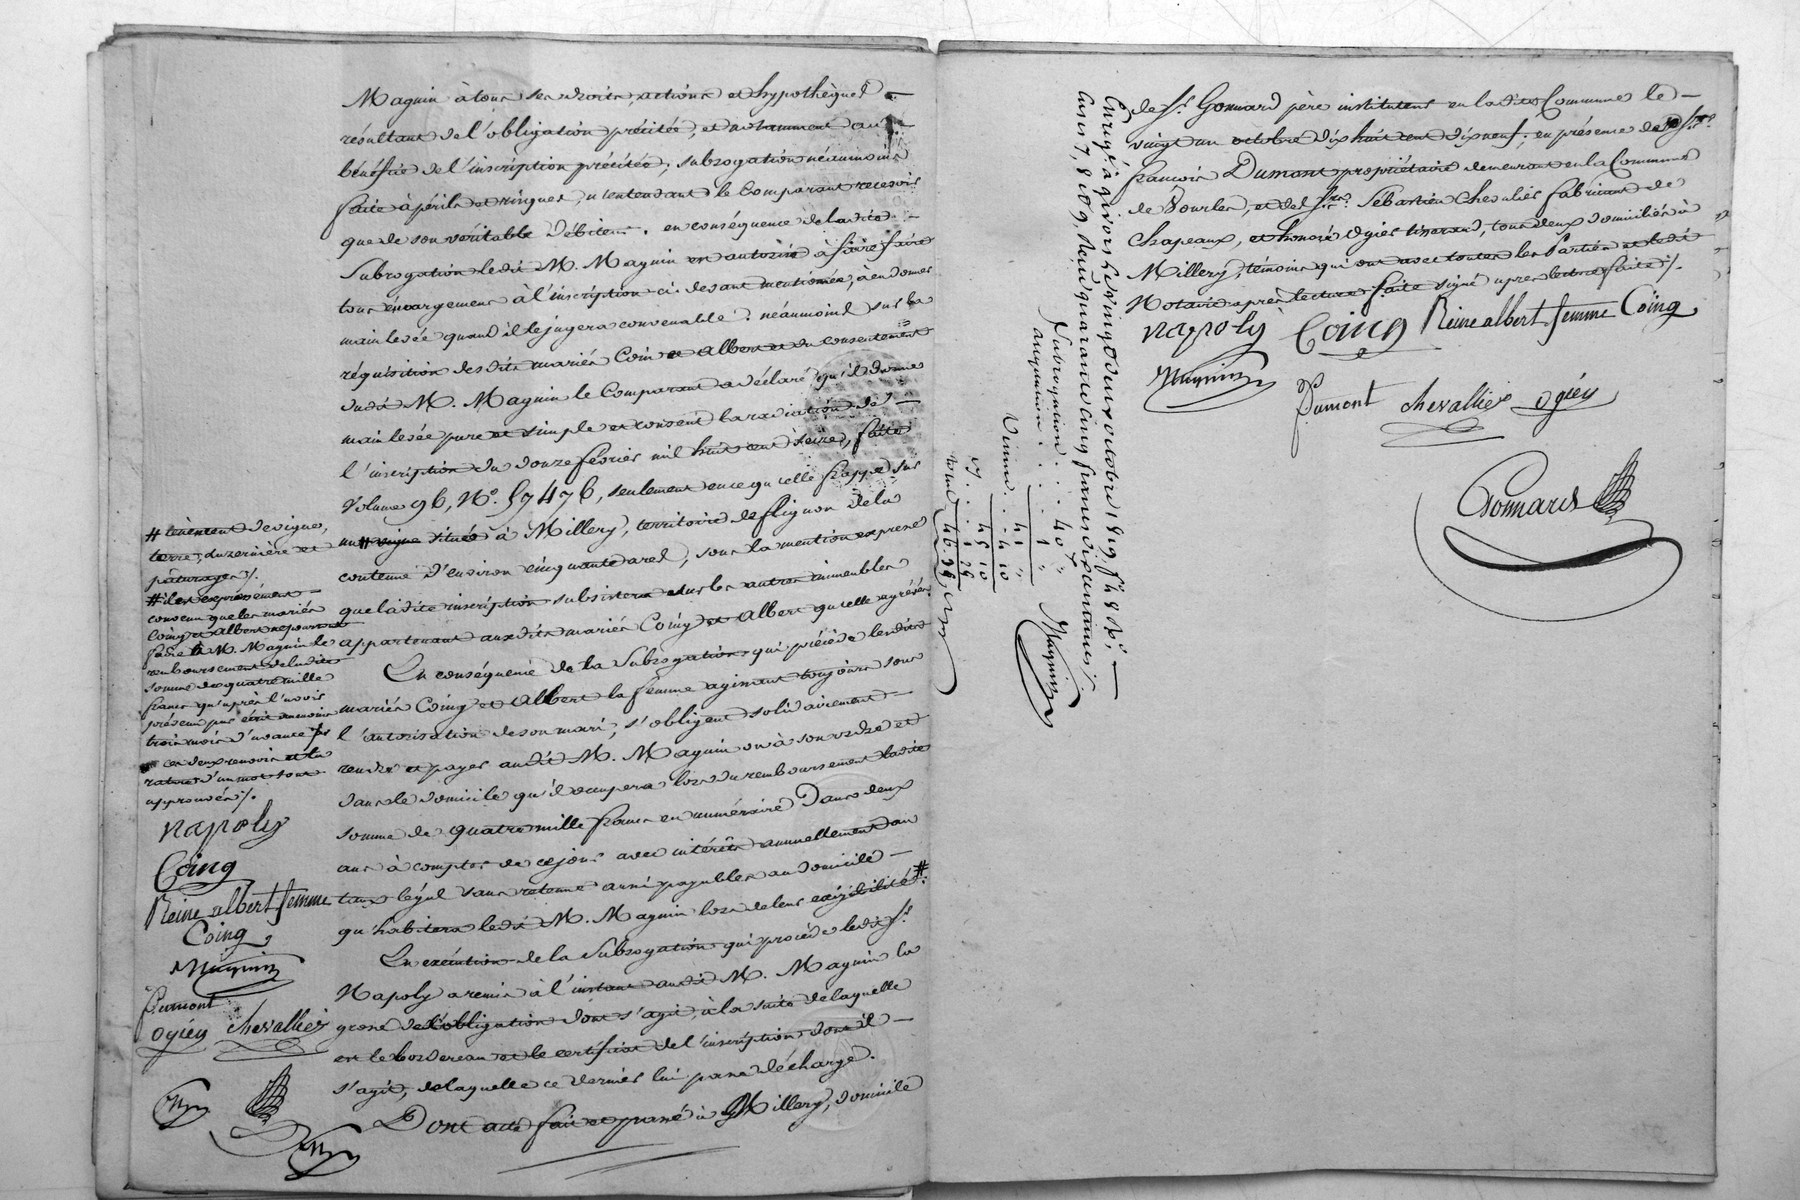 Maguin à tous ses droits, actions et hypothèques —
résultant de l'obligation précitée, et notamment au —
bénéfice de l'inscription précitée, subrogation néanmoins
faite à périls et risques, n'entendant le Comparant recevoir
que de son véritable débiteur. en conséquence de ladite —
Subrogation ledit M. Maguin est autorisé à faire faire
tous émargemens à l'inscription ci-devant mentionnée, à en donner
main levée quand il le jugera convenable. néanmoins sur la
réquisition desdits mariés Coing et Albert et du consentement
dudit M. Maguin le Comparant a déclaré qu'il donne
main levée pure et simple et consent la radiation de —
l'inscription du douze février mil huit cent seize, faite
Volume 96, N.° 57476, seulement en ce qu'elle frappe sur
un # vigne située à Millery, territoire de flignon de la
contenue d'environ cinquante ares, sous la mention expresse
que ladite inscription subsistera sur les autres immeubles
appartenant auxdits mariés Coing et Albert qu'elle a grévés.
En conséquence de la Subrogation qui précède lesdits
mariés Coing et Albert la femme agissant toujours sous
l'autorisation de son mari, s'obligent solidairement —
rendre et payer audit M. Maguin ou à son ordre et
dans le domicile qu'il occupera lors du remboursement ladite
somme de quatre mille francs en numéraire Dans deux
ans à compter de ce jour avec intérêts annuellement au
taux légal sans retenue aussi payables au domicile —
qu'habitera ledit M. Maguin lors de leur exigibilité. #
En exécution de la Subrogation qui précède ledit S.r
Napoly a remis à l'instant audit M. Maguin la
grosse de l'obligation dont s'agit, à la suite de laquelle
est le bordereau et le certificat de l'inscription dont il —
s'agit, de laquelle ce dernier lui passe décharge.
Dont acte fait et passé à Millery, domicile
# tènement de vigne,
terre, et
pâturages ;/.
# il est expressément —
convenu que les mariés
Coing et Albert ne pourront
faire à M. Maguin le
remboursement de ladite
somme de quatre mille
francs qu'après l'avoir
prévenu par écrit au moins
trois mois d'avance ;/.
ces deux renvois et la
rature d'un mot sont
approuvés ;/.
Napoly
Coing
Reine albert femme
Coing
Maguin
f. Dumont
ogiéy chevallier
de S.r Gonnard père instituteur en ladite Commune le —
vingt un octobre dix huit cent dix neuf, en présence de S.rs
françois Dumont propriétaire demeurant en la Commune
de Vourles, et des S.rs Sébastien Chevalier fabricant de
Chapeaux, et honoré Ogier tisserand, tous deux domiciliés à
Millery, témoins qui ont avec toutes les Parties et ledit
Notaire après lecture faite signé après lecture faite ;/.
Napoly Coing Reine albert femme Coing
Maguin
f. Dumont chevallier ogiéy
Gonnard
Enreg.é à givors le vingt deux octobre 1819, f.° 48 R.°, —
cases 7, 8 et 9, Reçu quarante cinq francs dix centimes ;/.
Subrogation . . . 40 "
augmen.on . . . 1 "
41 "
Dixme . . . 4 10
45 10
Maguin